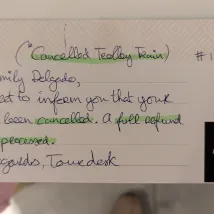 ("Cancelled Trolley Train)
#1
mily Delgado,
et to inform you that your
been cancelled. A full refund
processed.
egards, Tourdesk